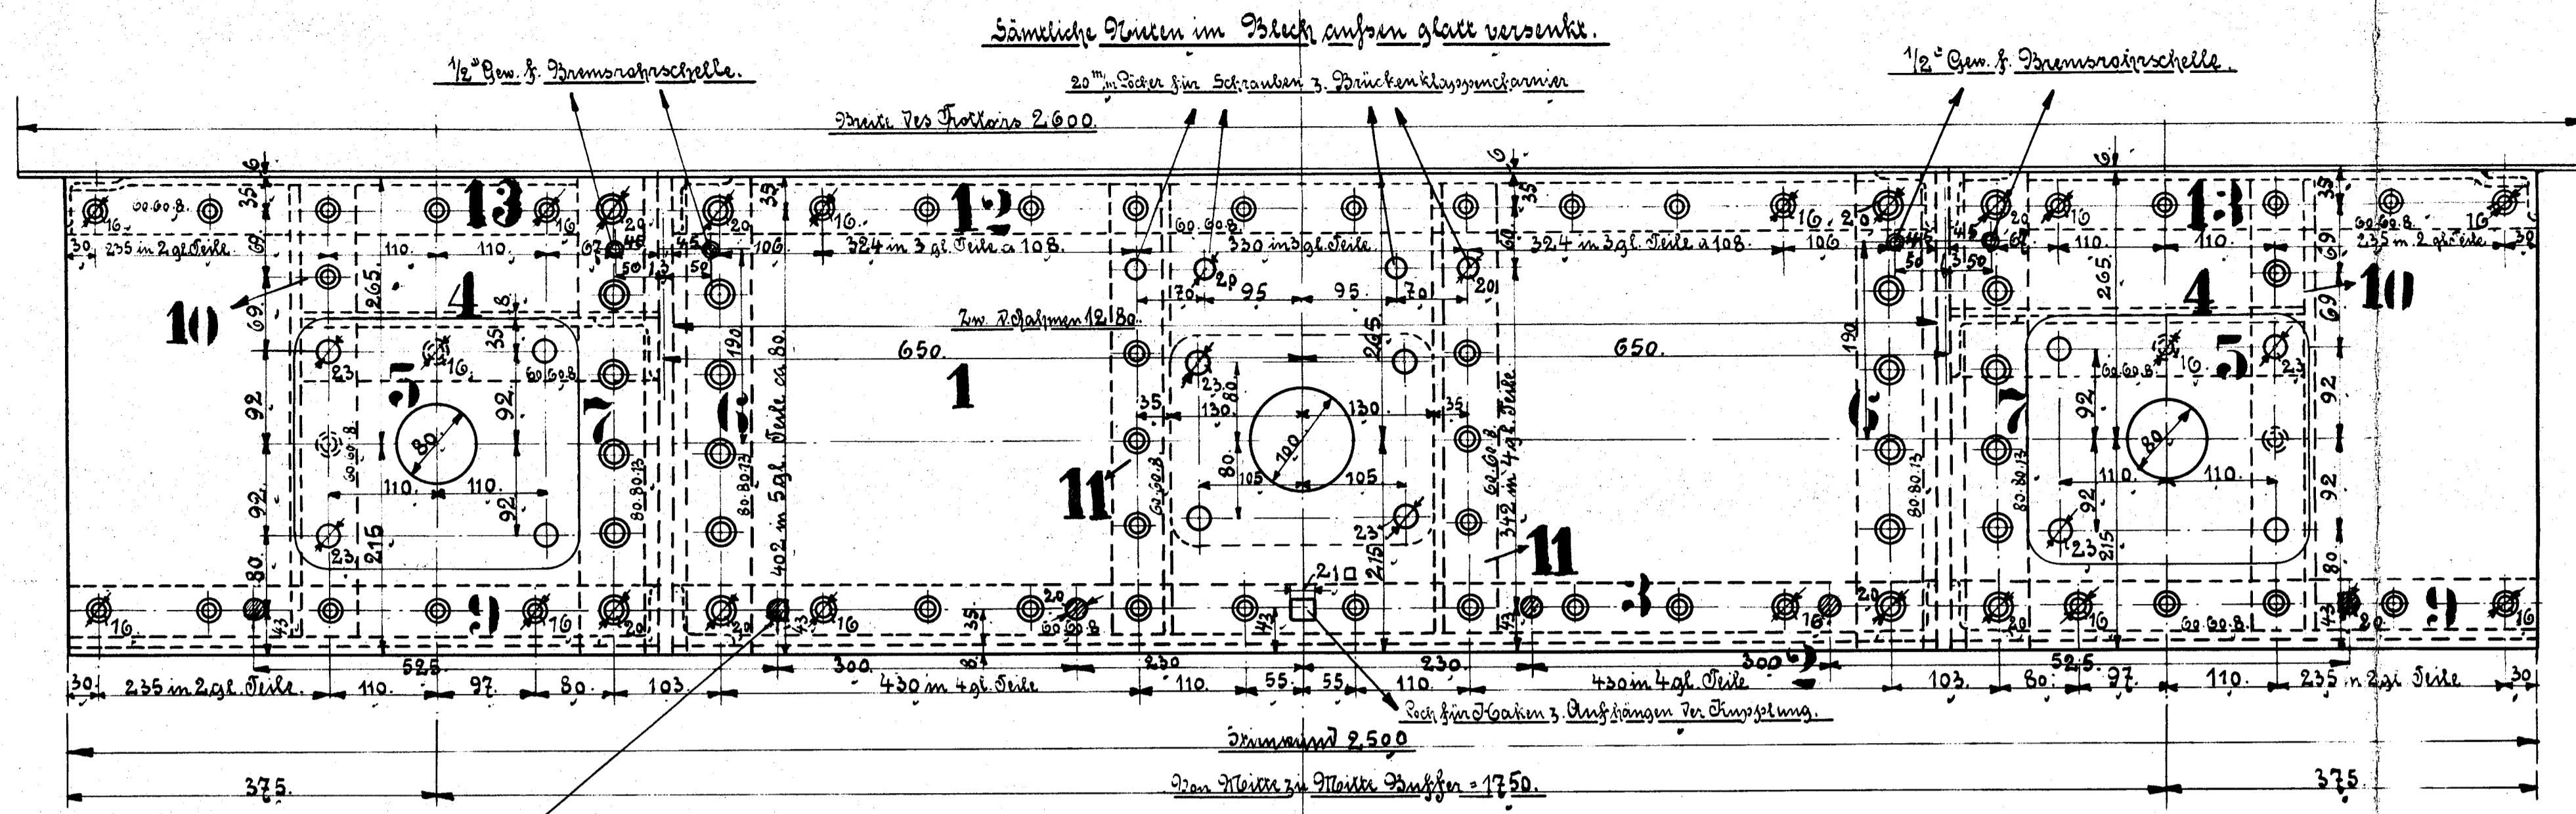 Sämtliche Nieten im Blech außen glatt versenkt.
1/2" Gew. f. Bremsrohrschelle.
20 m/m Löcher für Schrauben z. Brückenklappencharnier
1/2" Gew. f. Bremsrohrschelle.
Breite des Trottoirs 2600.
6 6 6
13 12 13
35 35 35 35
16. 60.60.8. 16 20 20 16. 60.60.8. 16. 20 20 16 60.60.8. 16
30 235 in 2 gl. Teile 110. 110. 67 45 45 106. 324 in 3 gl. Teile a 108. 330 in 3 gl. Teile. 324 in 3 gl. Teile a 108. 106. 45 67 110. 110. 235 in 2 gl. Teile 30
69 50 13 50 60 50 13 50 69
10 265 4 8 20 20 265 4 10
70 95 95 70
69 35 Zw. d. Rahmen 1280. 265 190 69
190 650. 650.
23 16. 60.60.8 1 23 80 60.60.8. 16. 23
5 5
92 92 7 6 35 130. 130. 35 6 7 92 92
80. 402 in 5 gl. Teile ca. 80. 100. 342 in 4 gl. Teile 80
60.60.8 80.80.13 80.80.13 60.60.8 60.60.8 80.80.13 80.80.13
110. 110. 11 80. 105 105 110. 110.
92. 92 92 92
23 215 23 215 11 23 215
80 21□ 80
9 3 9
16. 43 16 20 20 43 16 20 35 60.60.8 43 43 16 20 20 16 60.60.8. 43 20. 16
525 300. 8 230 230. 300 525.
30 235 in 2 gl. Teile. 110. 97. 80. 103. 430 in 4 gl. Teile 110. 55. 55. 110. 430 in 4 gl. Teile 103. 80. 97. 110. 235 in 2 gl Teile 30
Loch für Haken z. Aufhängen der Kupplung.
Stirnwand 2500
375. Von Mitte zu Mitte Buffer = 1750. 375.